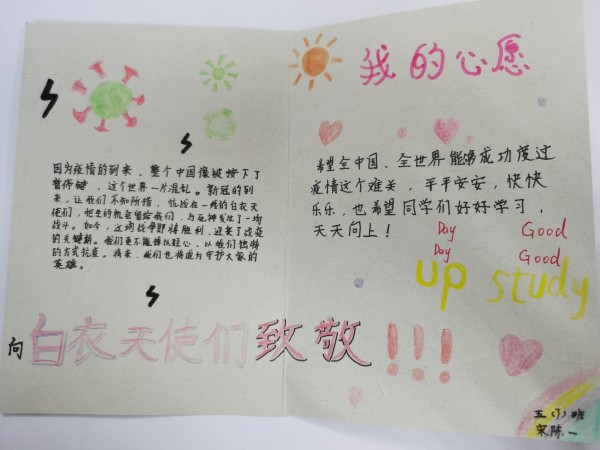 因为疫情的到来，整个中国像被按下了
暂停键，这个世界一片混乱。新冠的到
来，让我们不知所措，抗战在一线的白衣天
使们，把生的机会留给我们，与死神发生了一场
战斗。如今，这场战争即将胜利，迎来了战疫
的关键期。我们更不能掉以轻心，以我们独特
的方式抗疫。将来，我们也将成为守护大家的
英雄。
我的心愿
希望全中国、全世界能够成功度过
疫情这个难关，平平安安，快快
乐乐，也希望同学们好好学习，
天天向上！
Day Good
Day Good
up study
向白衣天使们致敬!!!
五(1)班
宋陈一